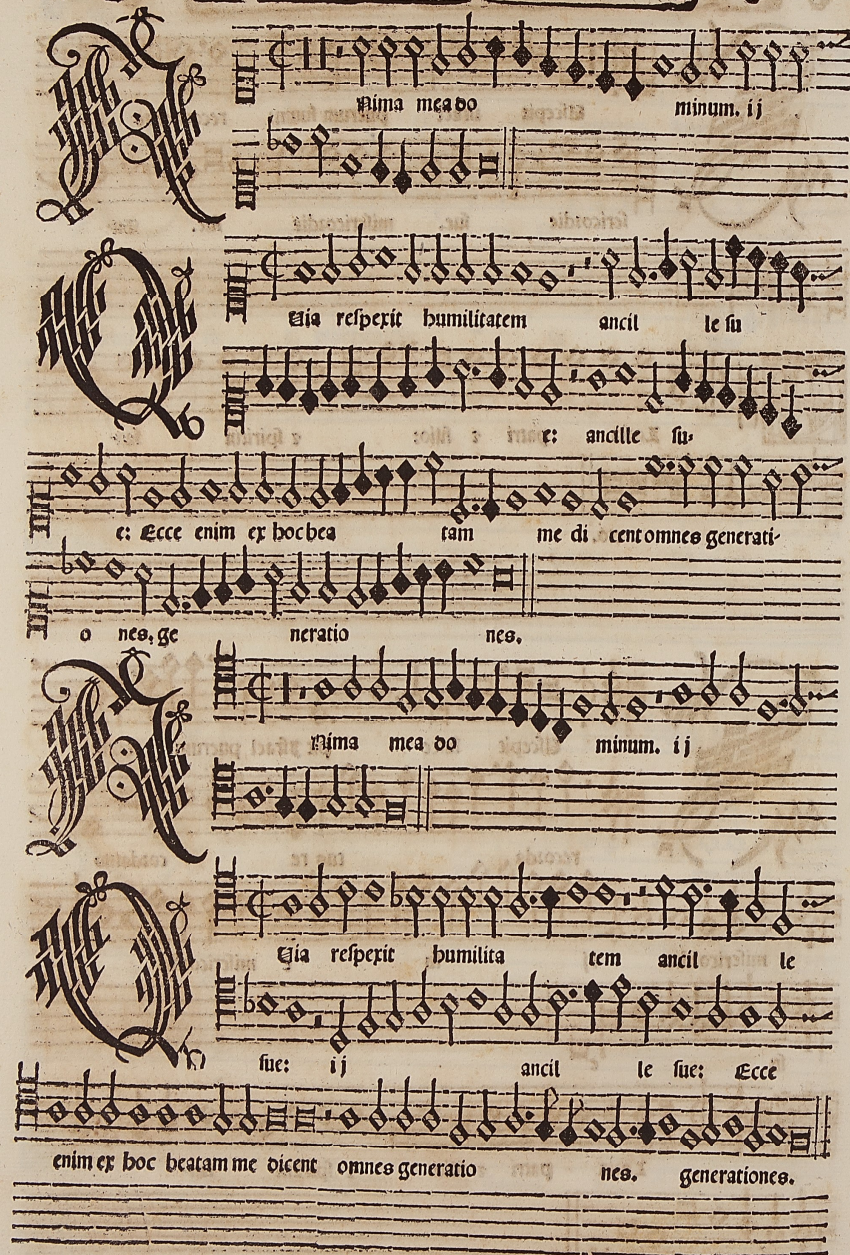 Anima mea do minum. ij
Quia respexit humilitatem ancil le su
e: ancille su-
e: Ecce enim ex hoc bea tam me di cent omnes generati-
o nes, ge neratio nes.
Anima mea do minum. ij
Quia respexit humilita tem ancil le
sue: ij ancil le sue: Ecce
enim ex hoc beatam me dicent omnes generatio nes. generationes.